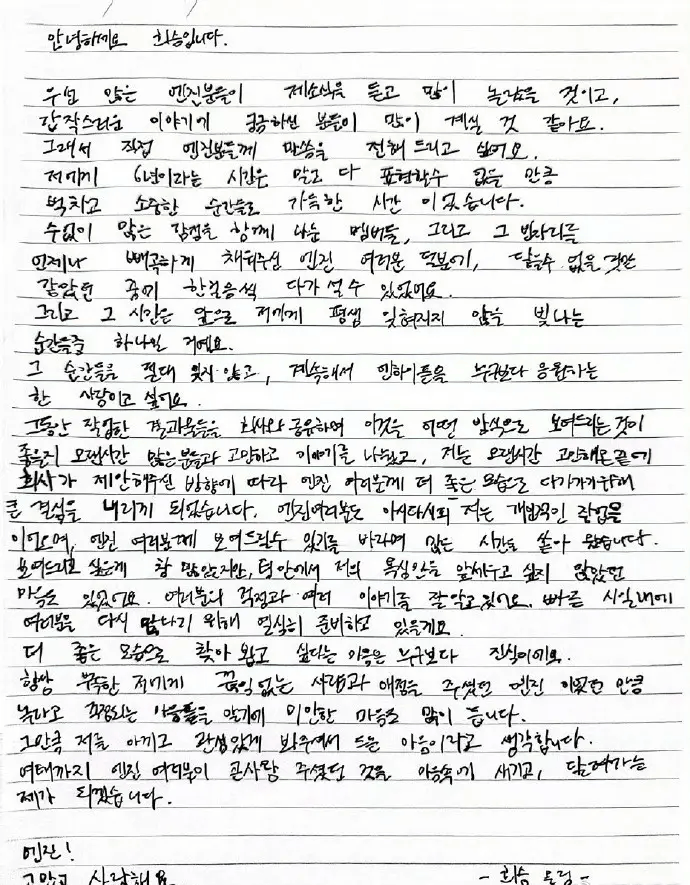 안녕하세요 희승입니다.
우선 많은 엔진분들이 제소식을 듣고 많이 놀랐을 것이고,
갑작스러운 이야기에 궁금하신 분들이 많이 계실 것 같아요.
그래서 직접 엔진분들께 말씀을 전해 드리고 싶어요.
저에게 6년이라는 시간은 말로 다 표현할수 없을 만큼
벅차고 소중한 순간들로 가득한 시간 이었습니다.
수없이 많은 감정을 함께 나눈 멤버들, 그리고 그 빈자리를
언제나 빼곡하게 채워주신 엔진 여러분 덕분에, 닿을수 없을 것만
같았던 꿈에 한걸음씩 다가 설 수 있었어요.
그리고 그 시간은 앞으로 저에게 평생 잊혀지지 않을 빛나는
순간들중 하나일 거예요.
그 순간들을 절대 잊지 않고, 계속해서 엔하이픈을 누구보다 응원하는
한 사람이고 싶어요.
그동안 작업한 결과물들을 회사와 공유하며 이것을 어떤 방식으로 보여드리는것이
좋을지 오랜시간 많은분들과 고민하고 이야기를 나눴고, 저는 오랜시간 고민해온끝에
회사가 제안해주신 방향에 따라 엔진 여러분께 더 좋은 모습으로 다가가고자
큰 결심을 내리게 되었습니다. 엔진여러분도 아시다시피 저는 개인적인 작업을
이어오며, 엔진 여러분께 보여드릴수 있기를 바라며 많은 시간을 쏟아 왔습니다.
보여드리고 싶은게 참 많았지만, 팀 안에서 저의 욕심만을 앞세우고 싶지 않았던
마음도 있었어요. 여러분의 걱정과 여러 이야기를 잘 알고있어요. 빠른 시일내에
여러분을 다시 만나기 위해 열심히 준비하고 있을게요.
더 좋은 모습으로 찾아 뵙고 싶다는 마음은 누구보다 진심이에요.
항상 부족한 저에게 끊임없는 사랑과 애정을 주셨던 엔진 이었던 만큼
놀라고 걱정되는 마음들을 알기에 미안한 마음도 많이 듭니다.
그만큼 저를 아끼고 관심있게 봐주셔서 드는 마음이라고 생각합니다.
여태까지 엔진 여러분이 큰사랑 주셨던 것을 마음속에 새기고, 달려가는
제가 되겠습니다.
엔진!
고맙고 사랑해요
- 희승 드림 -